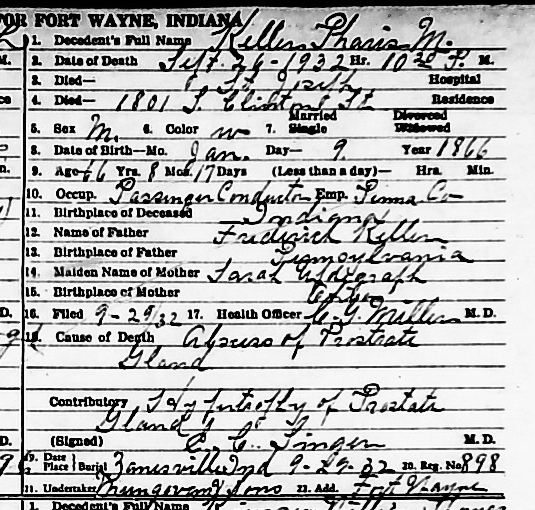 FOR FORT WAYNE, INDIANA
1. Decedent's Full Name Keller Pharis M.
2. Date of Death Sept. 26-1932 Hr. 10 30 P. M.
3. Died— St Joseph Hospital
4. Died— 1801 S. Clinton St Residence
5. Sex M. 6. Color W 7. Married Single Divorced Widowed
8. Date of Birth—Mo. Jan. Day— 9. Year 1866
9. Age 66 Yrs. 8 Mos. 17 Days (Less than a day)— Hrs. Min.
10. Occup. Passenger Conductor Emp. Penna Co
11. Birthplace of Deceased Indiana
12. Name of Father Frederick Keller
13. Birthplace of Father Pennsylvania
14. Maiden Name of Mother Sarah
15. Birthplace of Mother
16. Filed 9-29/32 17. Health Officer C. G. Miller M. D.
18. Cause of Death Abscess of Prostate
Gland
Contributory Hypertrophy of Prostate
Gland
(Signed) C. C. Singer M. D.
19. Date Place Burial Zanesville Ind 9-29-32 20. Reg. No. 898
21. Undertaker Mungovan & Sons 22. Add. Fort Wayne
1. Decedent's Full Name